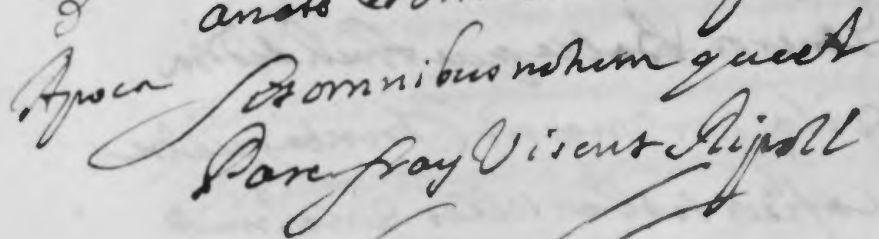 anets
Apoca Sit omnibus nottum que el
Pare fray Visent Ripoll